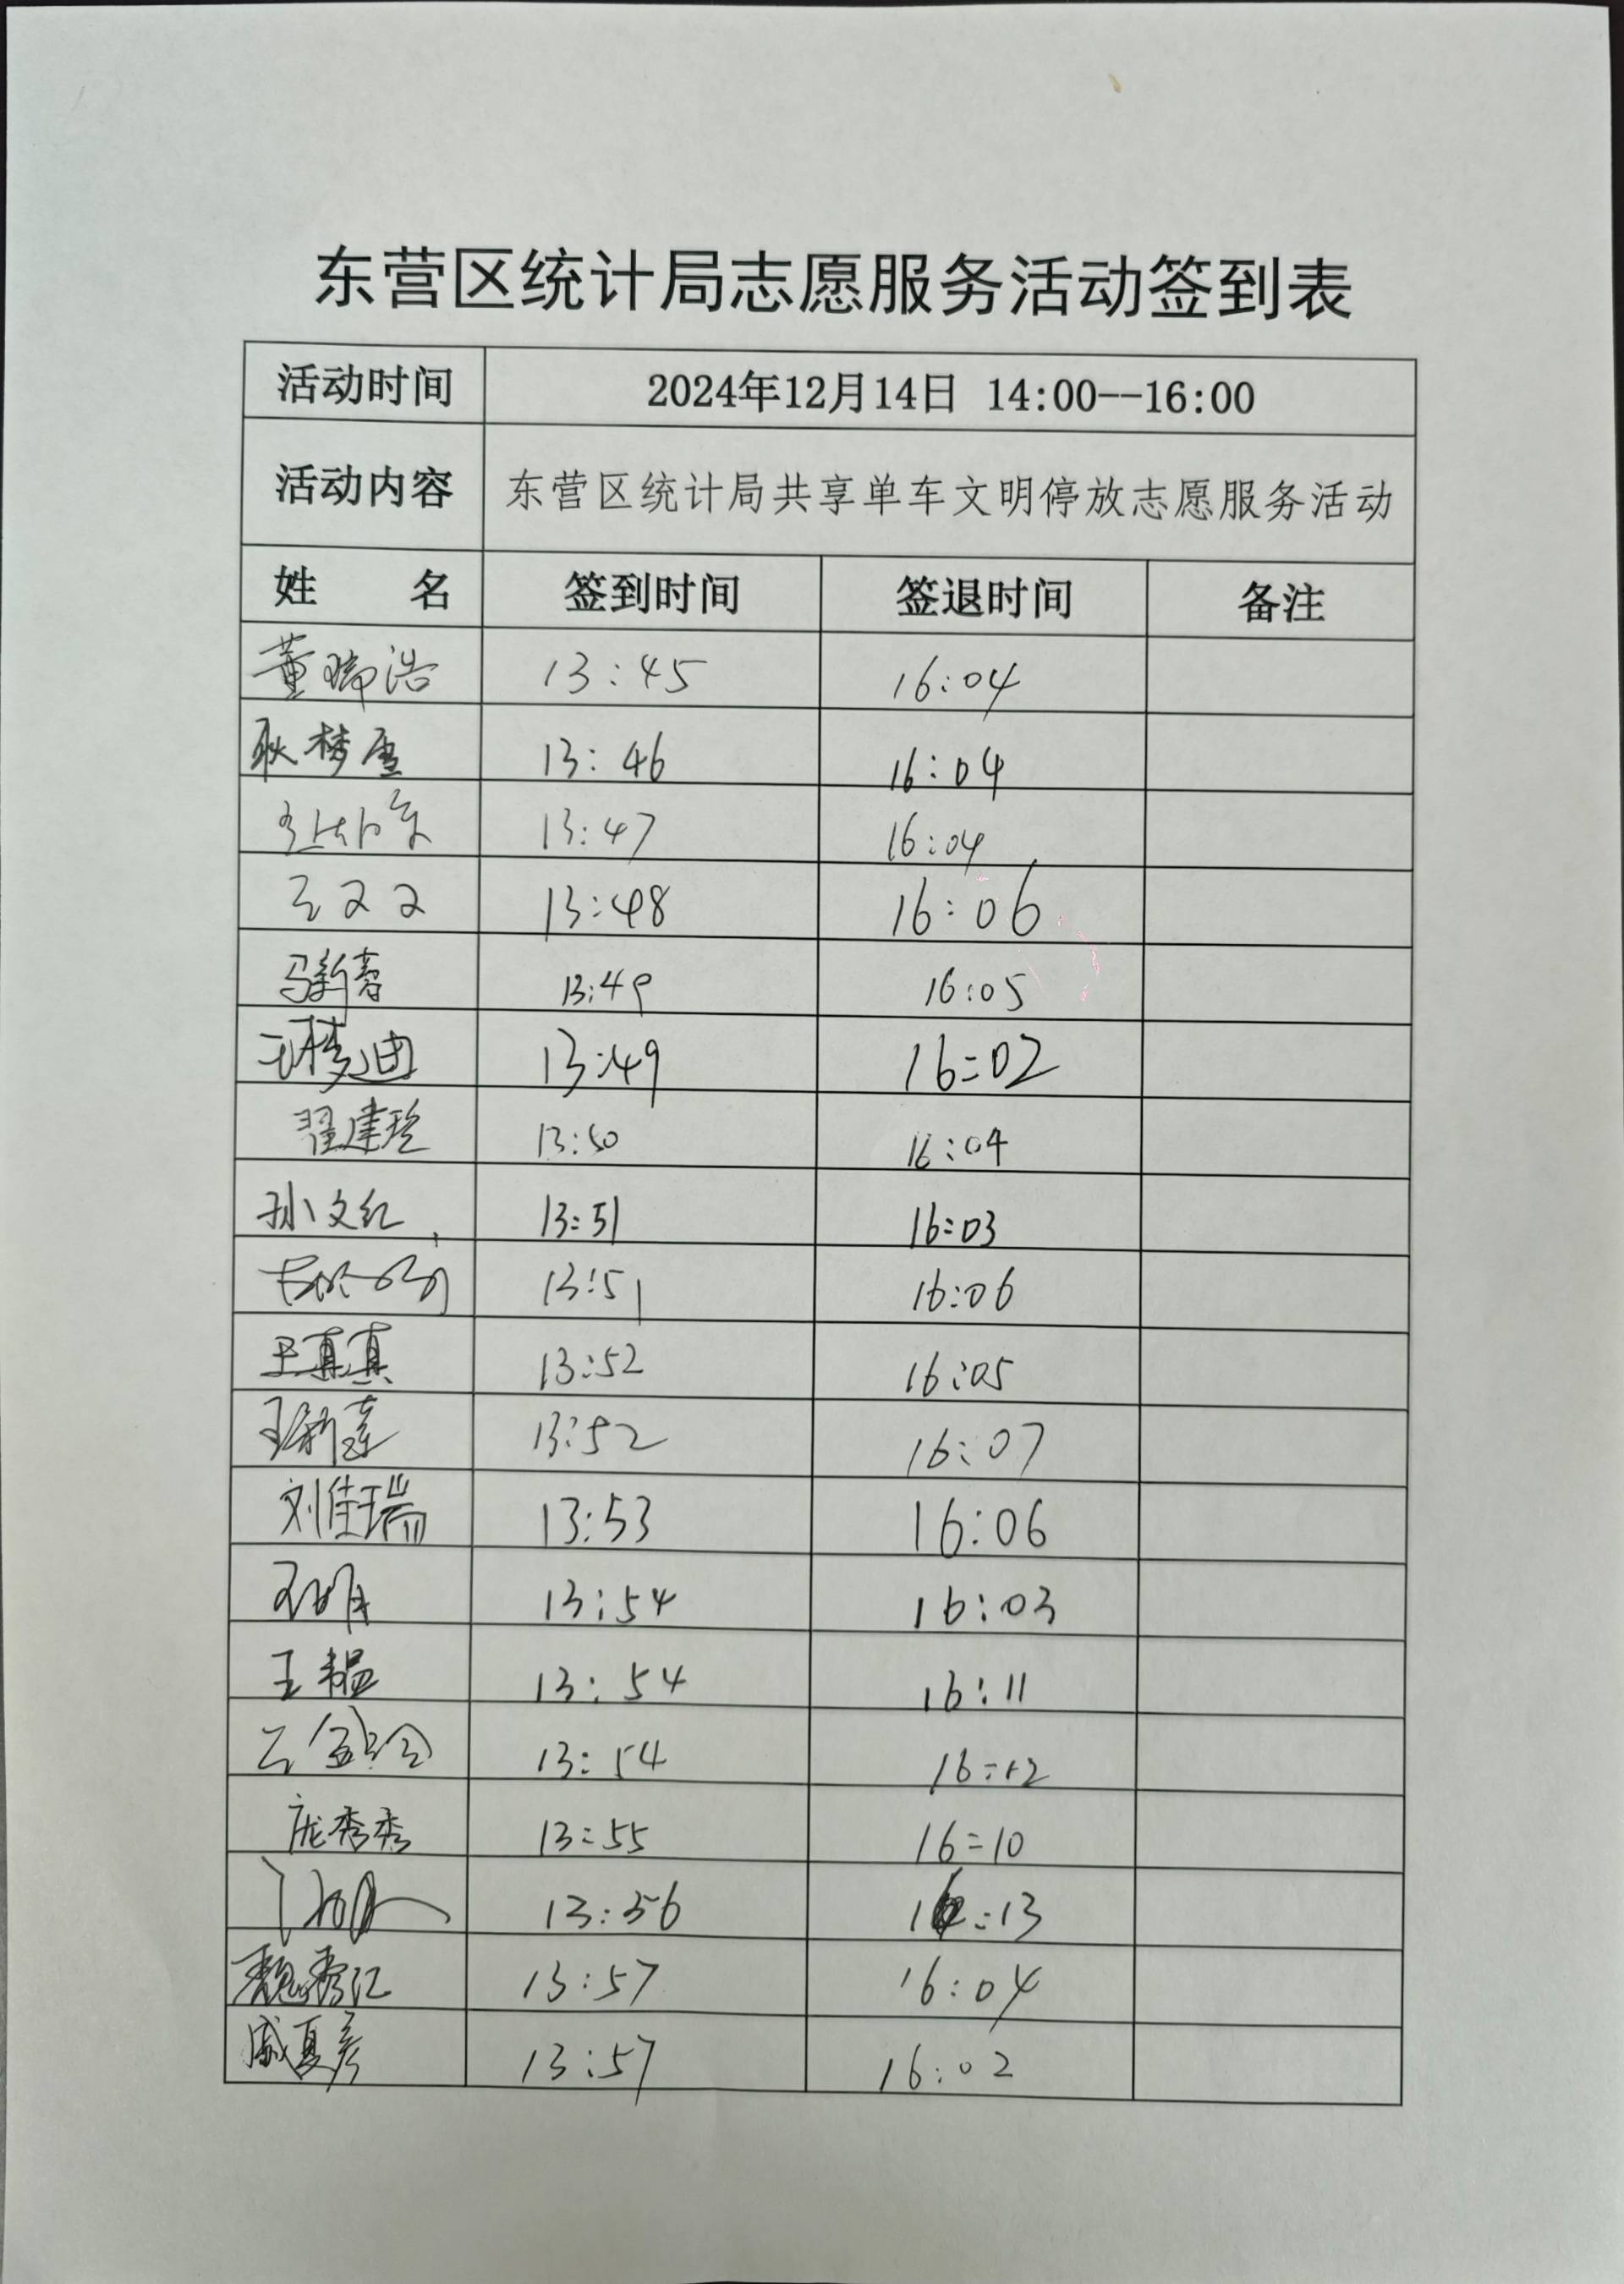 东营区统计局志愿服务活动签到表
活动时间 2024年12月14日 14:00--16:00
活动内容 东营区统计局共享单车文明停放志愿服务活动
姓 名 签到时间 签退时间 备注
董瑞浩 13:45 16:04
耿梦雪 13:46 16:04
13:47 16:04
王文文 13:48 16:06
马新春 13:49 16:05
王梦迪 13:49 16:02
翟建玲 13:50 16:04
孙文红 13:51 16:03
13:51 16:06
王真真 13:52 16:05
王新莲 13:52 16:07
刘佳瑞 13:53 16:06
13:54 16:03
王韫 13:54 16:11
13:54 16:12
庞秀秀 13:55 16:10
13:56 16:13
魏秀江 13:57 16:04
戚夏彦 13:57 16:02